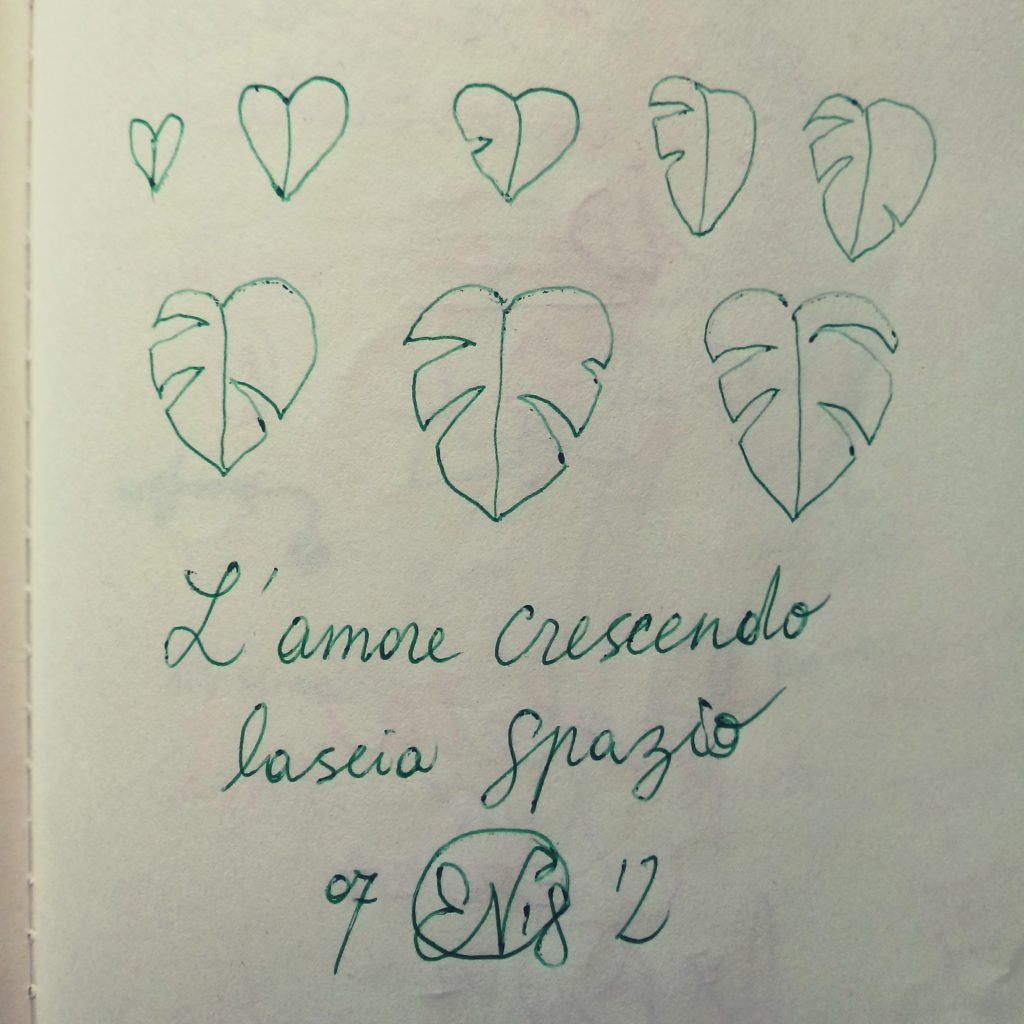 L'amore crescendo
lascia spazio
07 ENis '12